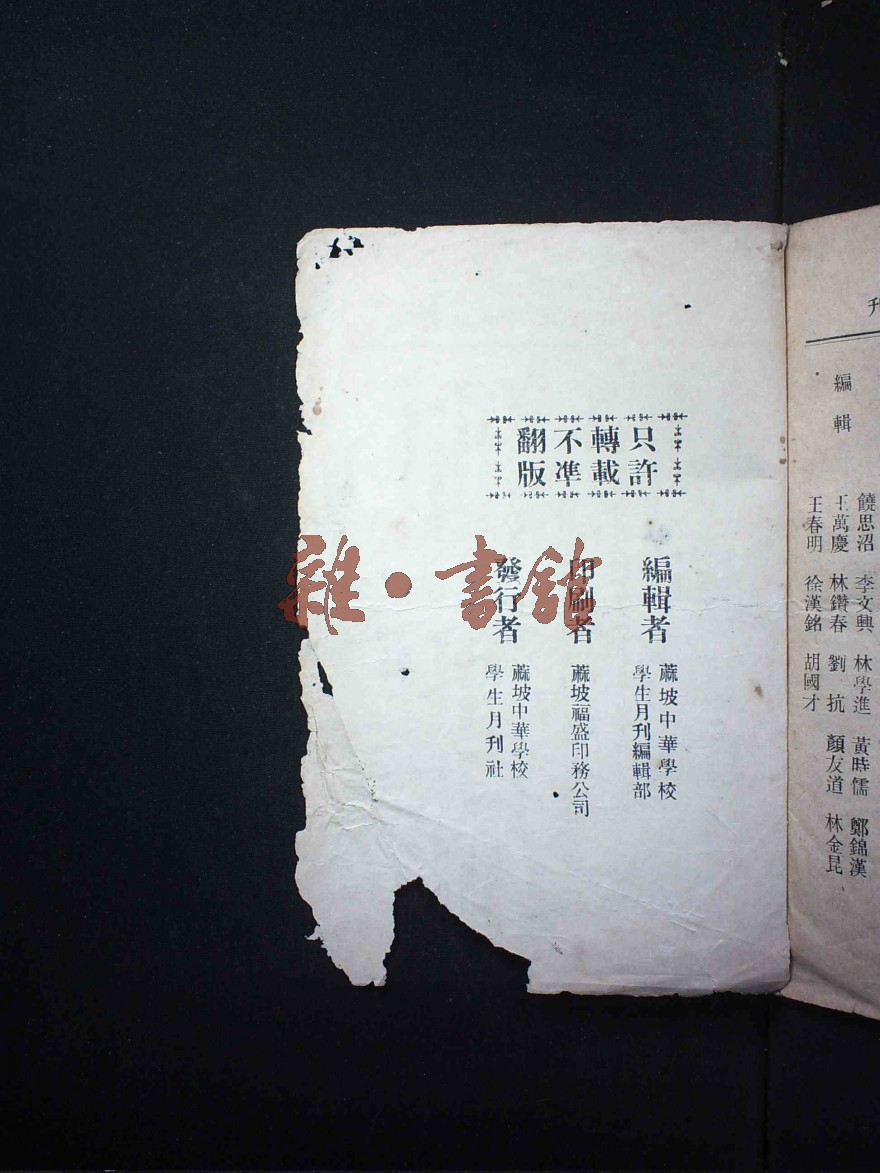 刋
編輯
饒思沼 李文興 林學進 黃時儒 鄭錦漢
王萬慶 林鑽春 劉抗 顏友道 林金昆
王春明 徐漢銘 胡國才
只許
轉載
不準
翻版
編輯者
蔴坡中華學校
學生月刊編輯部
印刷者
蔴坡福盛印務公司
發行者
蔴坡中華學校
學生月刊社
雜·書館